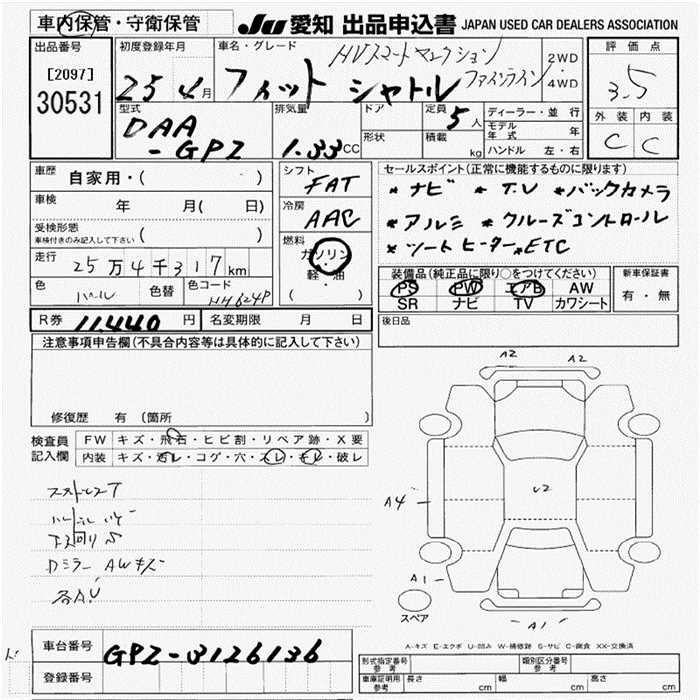 車内保管・守衛保管
JU 愛知 出品申込書 JAPAN USED CAR DEALERS ASSOCIATION
出品番号
[2097]
30531
初度登録年月
25 4月
車名・グレード
HVスマートセレクション
フィット シャトル ファインライン
2WD
・
4WD
評価点
3.5
外装 内装
C C
型式
DAA
-GPZ
排気量
1.33CC
ドア
形状
定員 5人
積載 kg
ディーラー・並行
モデル年式 年
ハンドル 左・右
車歴 自家用・( )
車検 年 月( 日)
受検形態
車検付きのみ記入して下さい ( )
走行 25万4千317km
色 パール 色替 色コード NH624P
シフト
FAT
冷房
AAC
燃料
ガソリン
・
軽・油
( )
セールスポイント(正常に機能するものに限ります)
*ナビ *T.V *バックカメラ
*アルミ *クルーズコントロール
*シートヒーター*ETC
装備品(純正品に限り○をつけてください)
PS PW エアB AW
SR ナビ TV カワシート
新車保証書
有・無
R券 11,440円 名変期限 月 日
後日品
注意事項申告欄(不具合内容等は具体的に記入して下さい)
修復歴 有(箇所 )
検査員記入欄
FW キズ・飛石・ヒビ割・リペア跡・X要
内装 キズ・汚レ・コゲ・穴・スレ・キレ・破レ
下回りS
Dミラー AWキズ
各AU
A2 A2
U2
A4
A1
スペア
A1
A-キズ E-エクボ U-凹み W-補修跡 S-サビ C-腐食 XX-交換済
車台番号 GPZ-3126136
登録番号
形式指定番号 参考
類別区分番号 参考
車庫証明用 参考 長さ cm 幅 cm 高さ cm